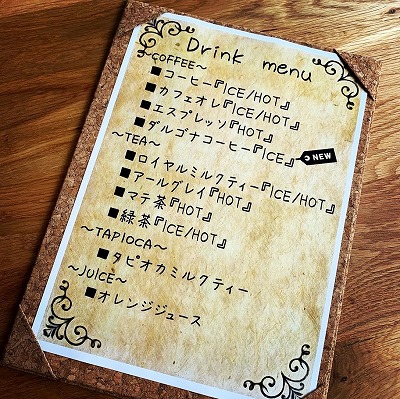 Drink menu
～COFFEE～
■コーヒー『ICE/HOT』
■カフェオレ『ICE/HOT』
■エスプレッソ『HOT』
■ダルゴナコーヒー『ICE』 NEW
～TEA～
■ロイヤルミルクティー『ICE/HOT』
■アールグレイ『HOT』
■マテ茶『HOT』
■緑茶『ICE/HOT』
～TAPIOCA～
■タピオカミルクティー
～JUICE～
■オレンジジュース